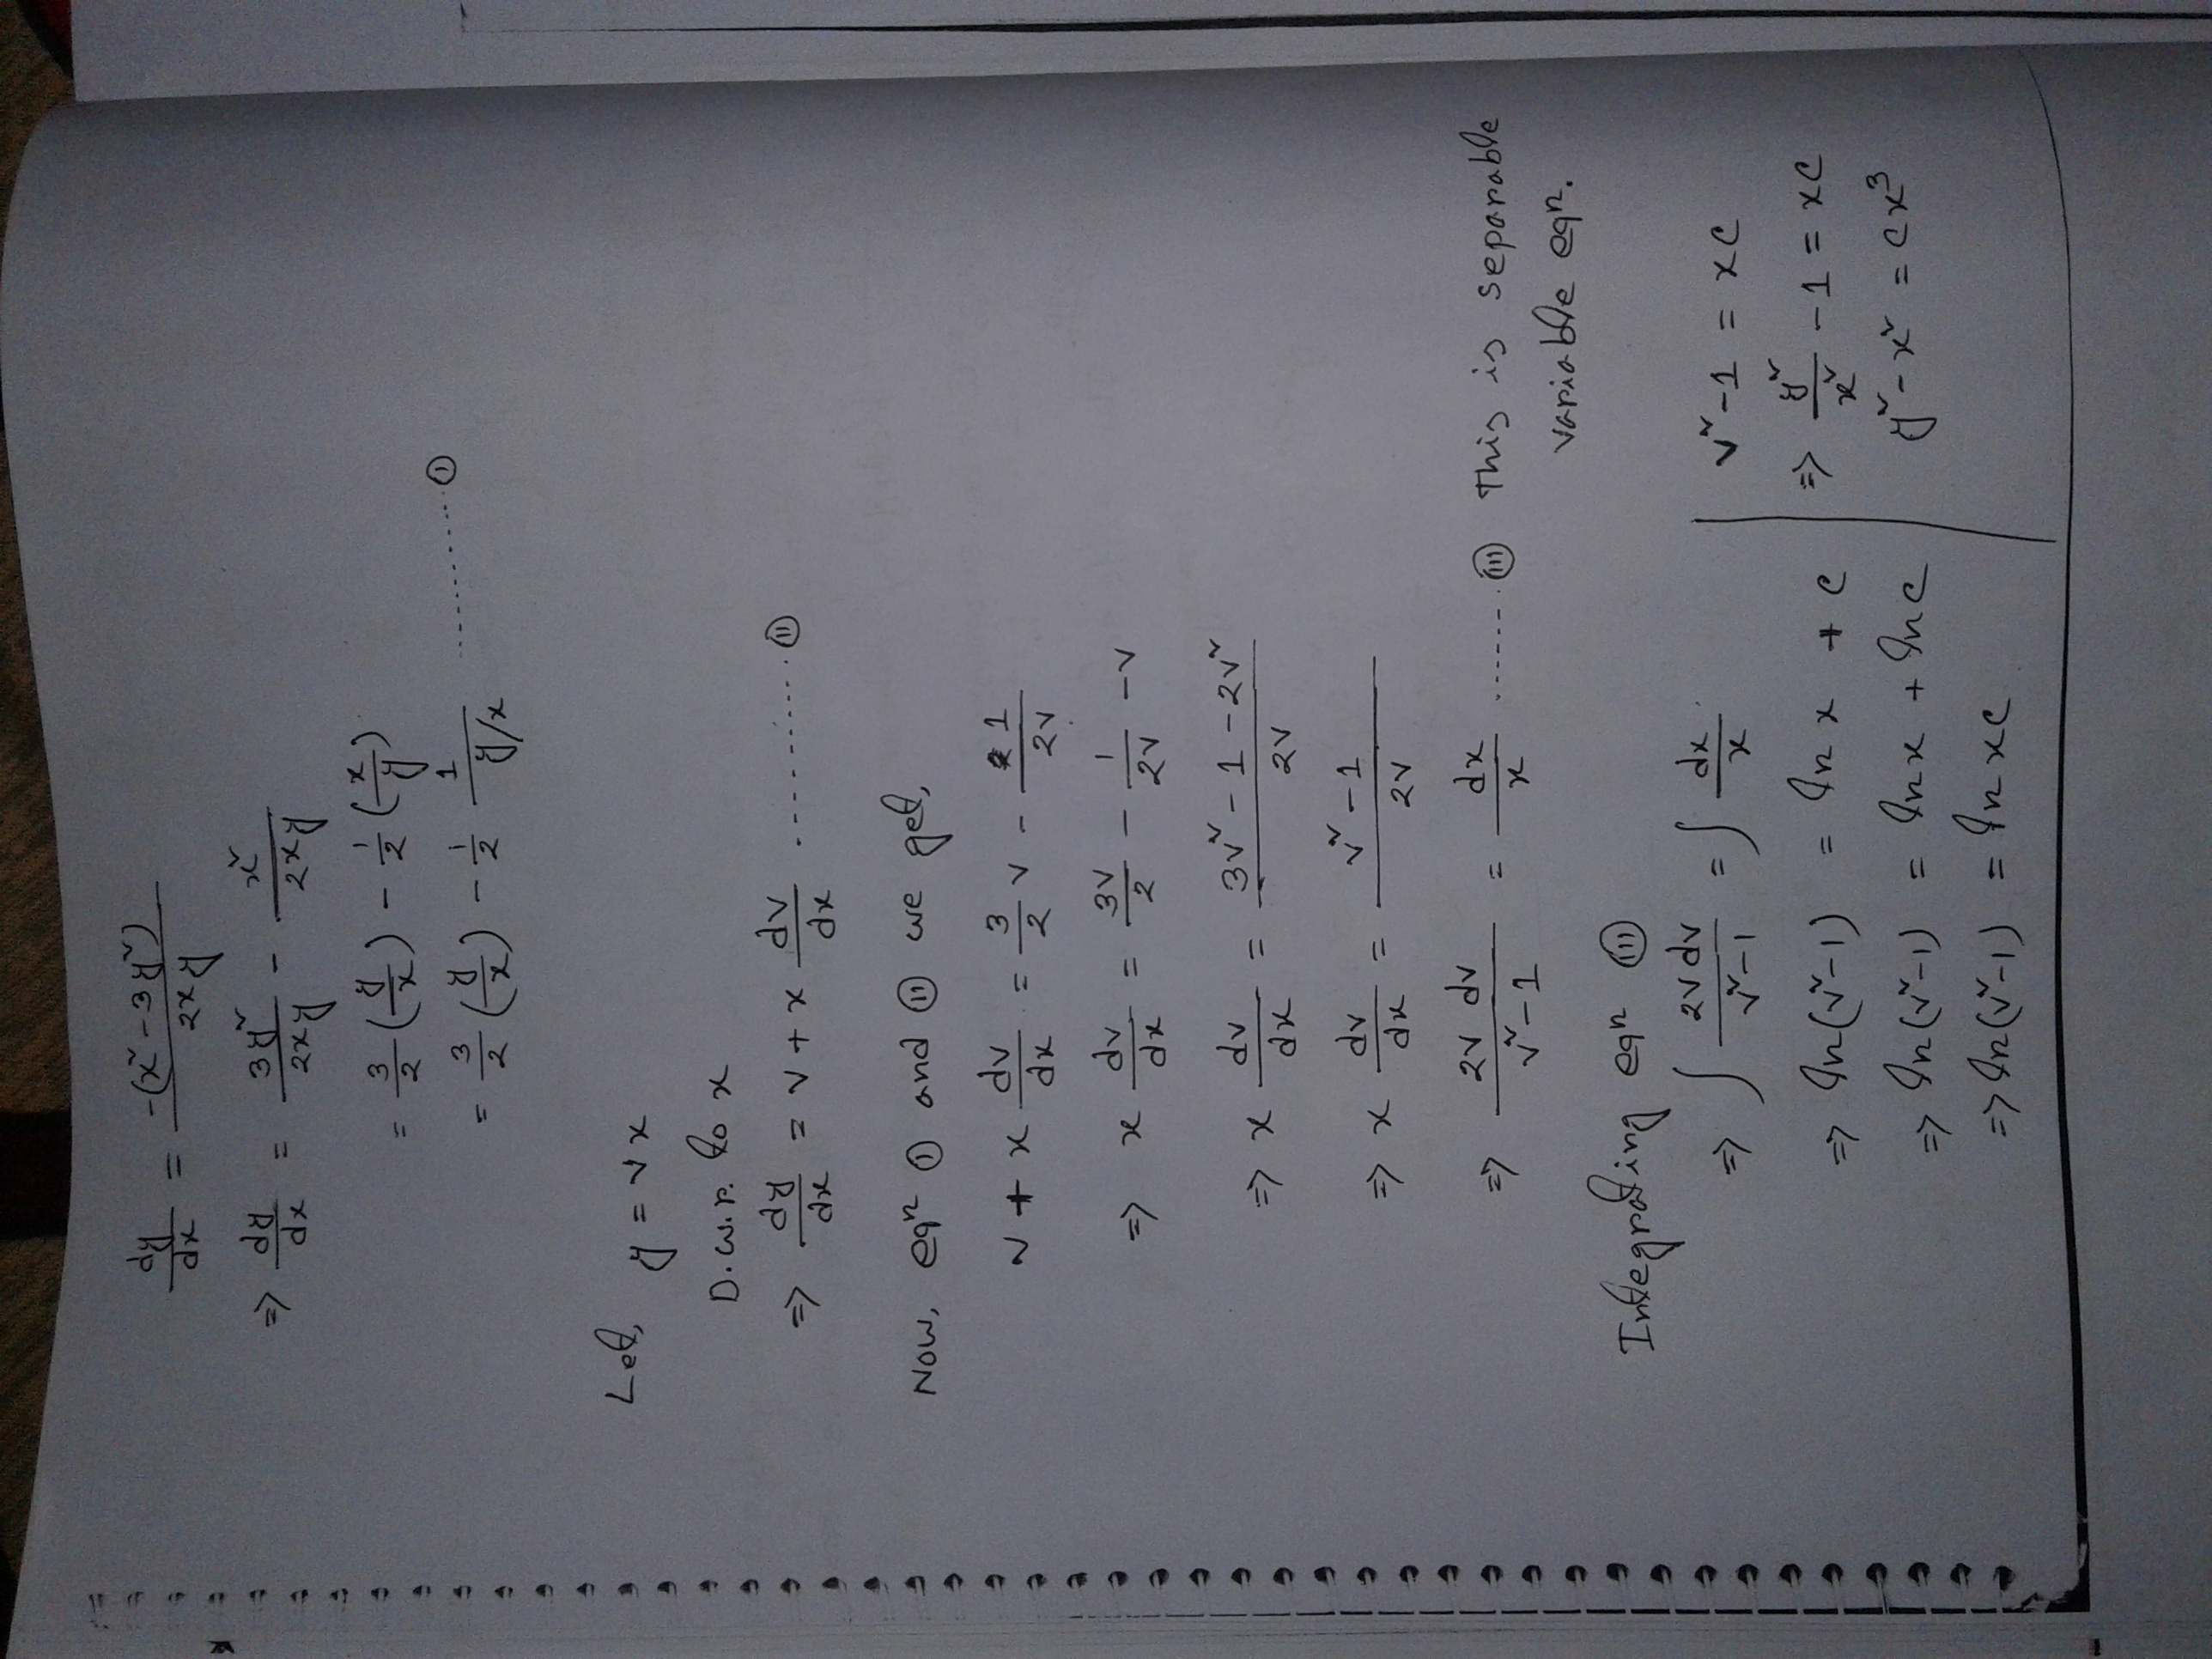 dy/dx = -(x² - 3y²)/2xy
⇒ dy/dx = 3y²/2xy - x²/2xy
= 3/2 (y/x) - 1/2 (x/y)
= 3/2 (y/x) - 1/2 1/(y/x) .......... ①
Let, y = vx
D.w.r. to x
⇒ dy/dx = v + x dv/dx .......... ⑪
Now, eqn ① and ⑪ we get,
v + x dv/dx = 3/2 v - 1/2v
⇒ x dv/dx = 3v/2 - 1/2v - v
⇒ x dv/dx = (3v² - 1 - 2v²)/2v
⇒ x dv/dx = (v² - 1)/2v
⇒ 2v dv/(v² - 1) = dx/x ...... (111) This is separable
variable eqn.
Integrating eqn (111)
⇒ ∫ 2v dv/(v² - 1) = ∫ dx/x
⇒ ln(v² - 1) = ln x + c
⇒ ln(v² - 1) = ln x + ln c
⇒ ln(v² - 1) = ln xc
v² - 1 = xc
⇒ y²/x² - 1 = xc
y² - x² = cx³